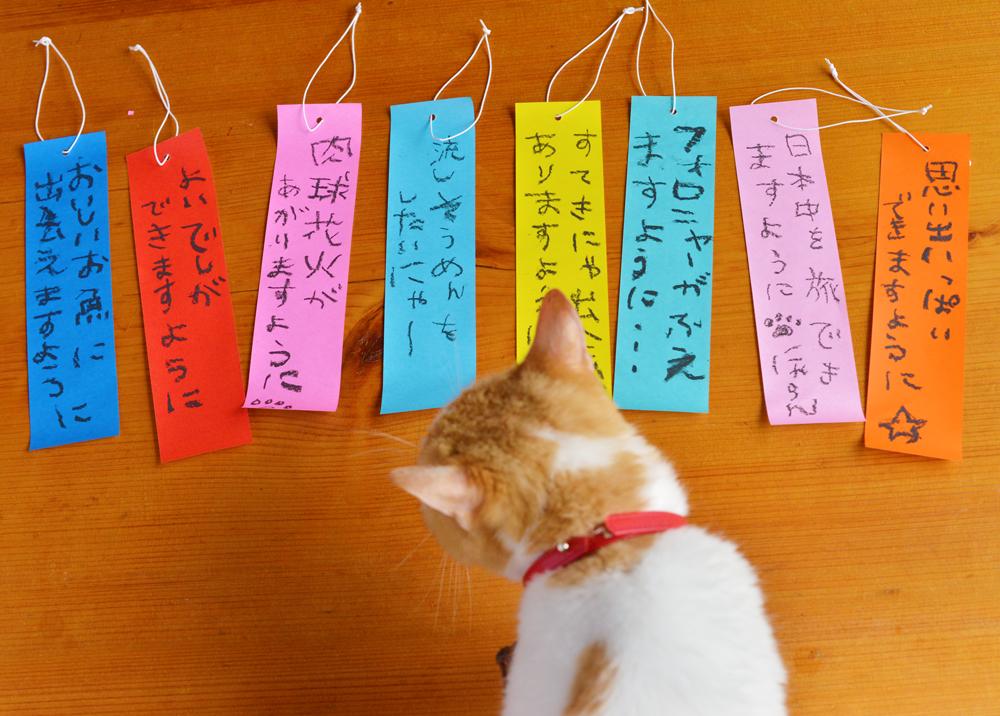 できますように☆
日本中を旅でき
ますように
フォロニャーがふえ
ますように・・・
すてきにゃ出
ありますよう
流しそうめんを
したいにゃー
肉球花火が
あがりますように
よいでしが
できますように
おいしいお魚に
出会えますように